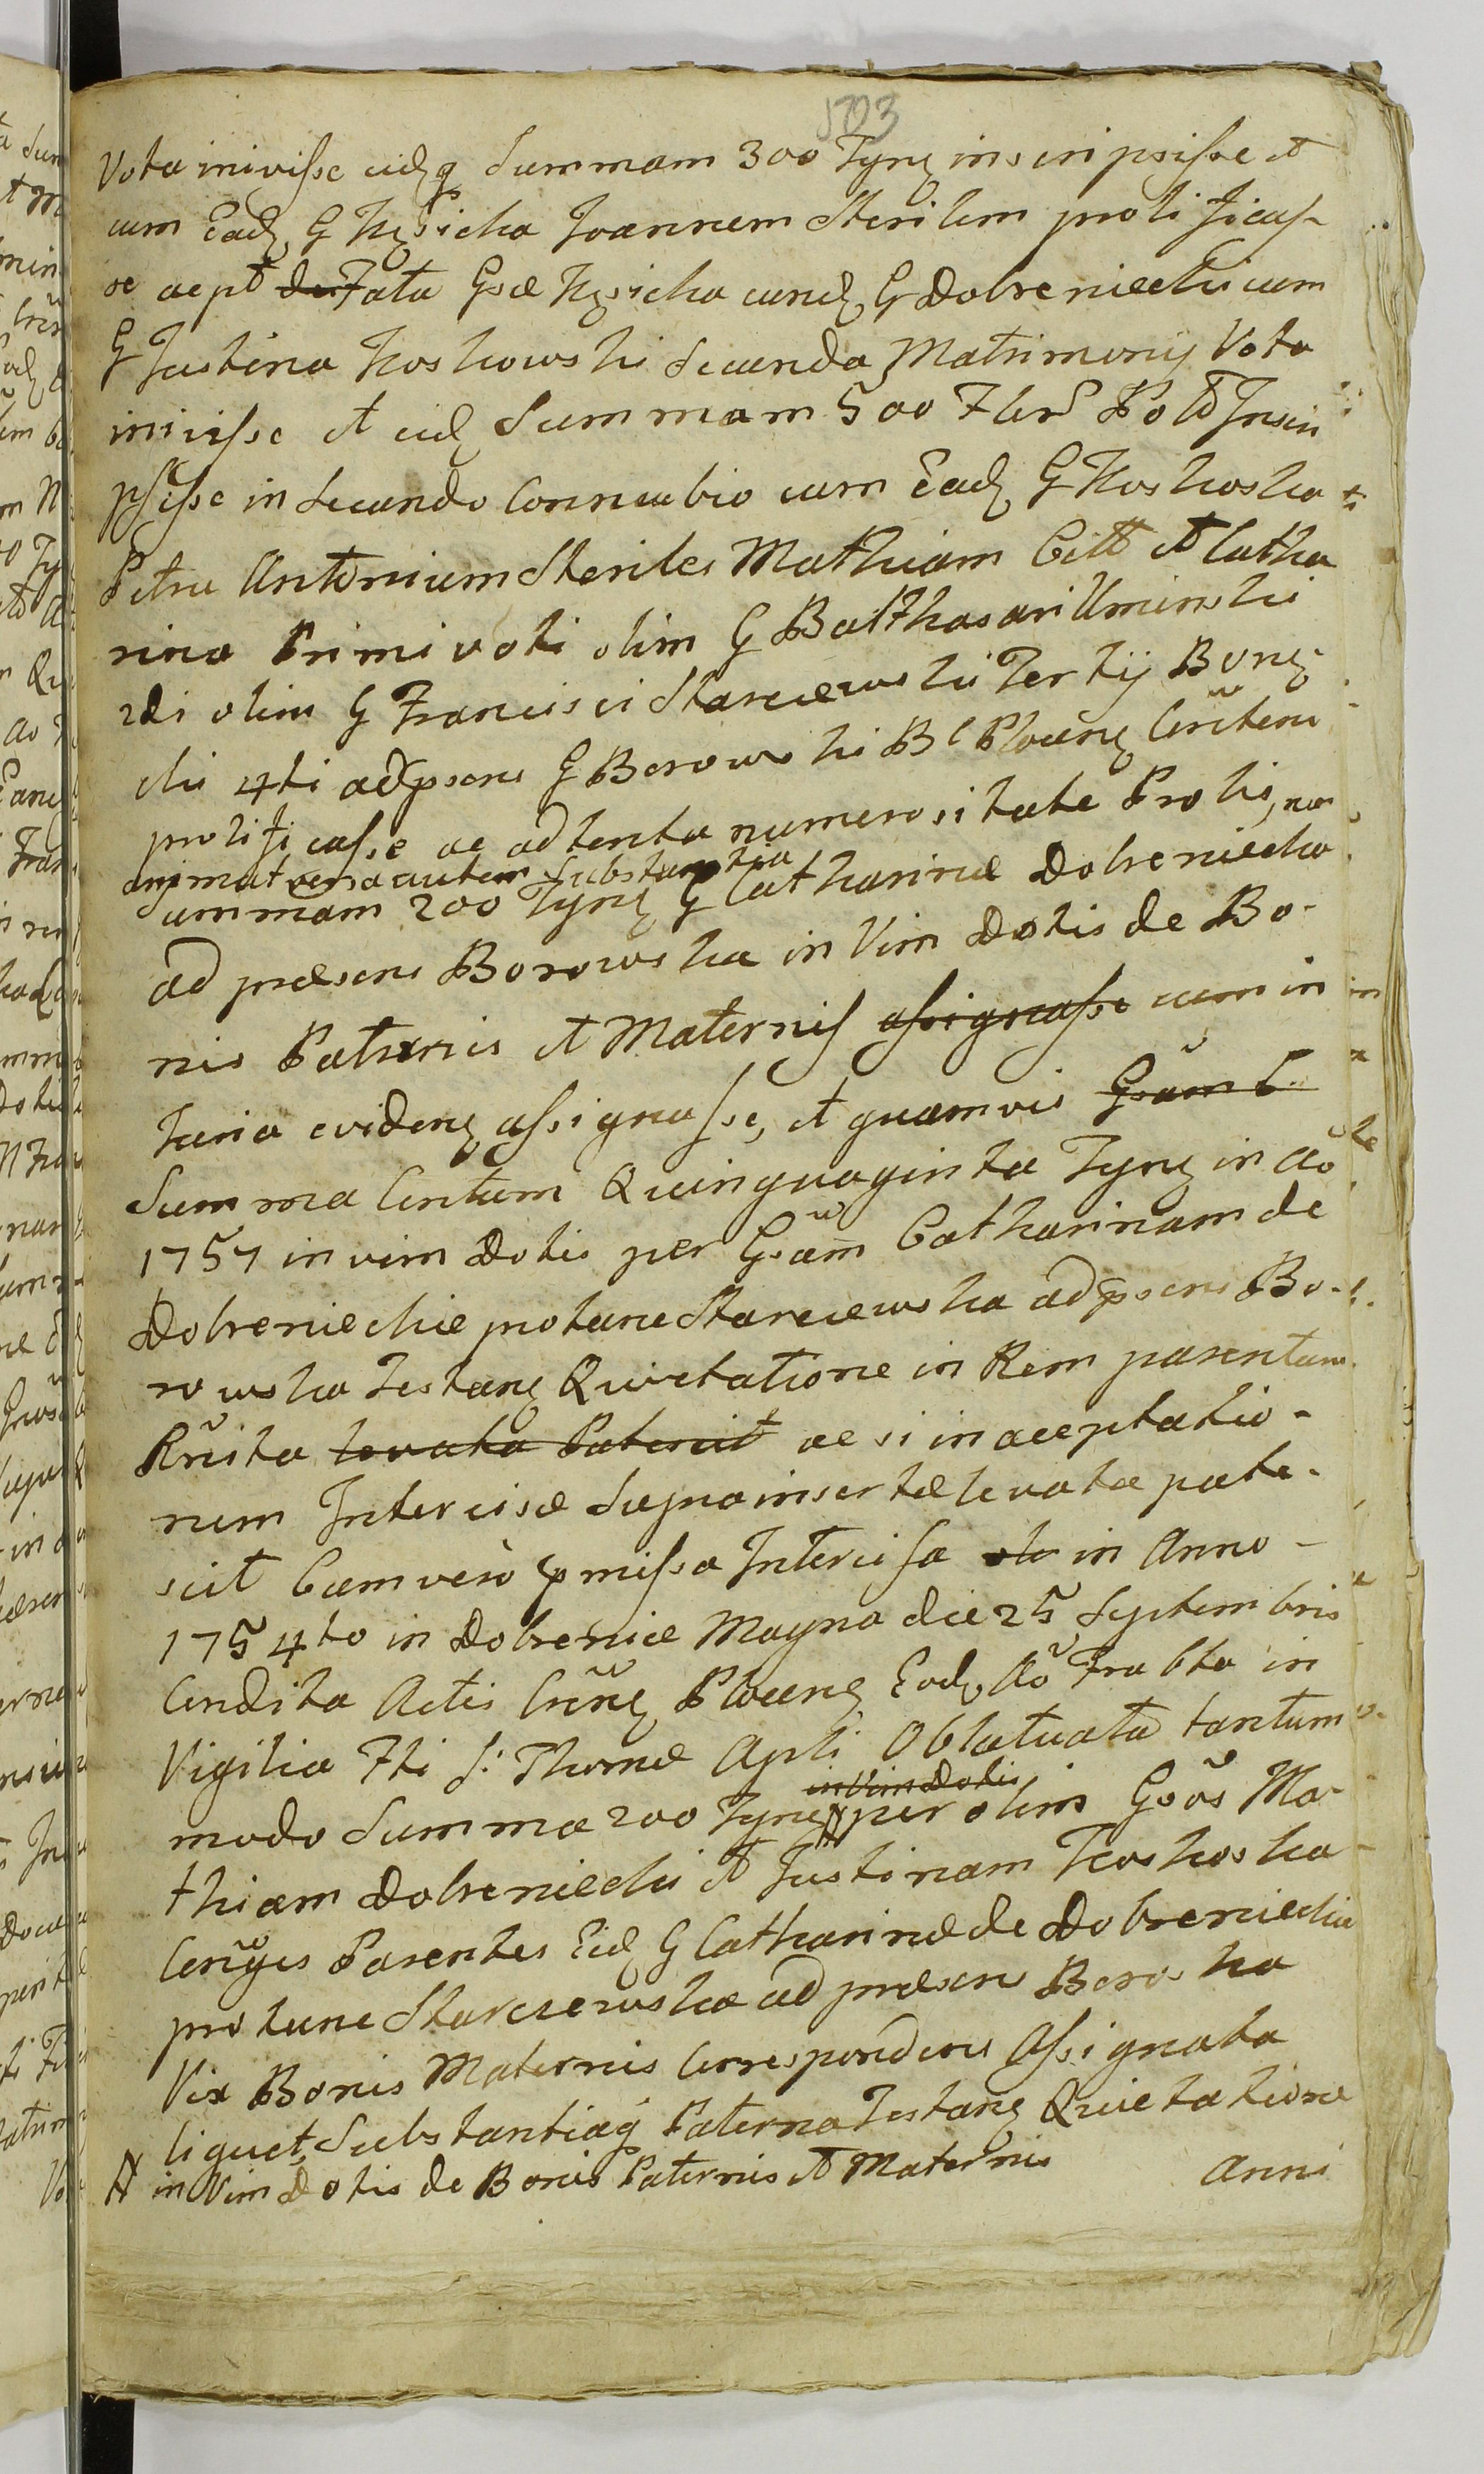 503
Vota inivisse eidq Summam 300 Tynf inscripsisse et
cum Ead G Kęsicka Joannem Sterilem prolificas-
se ac pt de Fata Gsæ Kęsicka eund G Dobreniecki cum
G Justina Koskowski Secunda Matrimony Vota
inivisse et eid Summam 500 Flor Pold Inscri
psisse in Secundo Connubio cum Ead G Koskoska
Petru Antonium Steriles Mathiam Citt et Catha
rina Primi voti olim G Balthasari Uminski
2di olim G Francisci Starczewski Tertij Bong
cki 4ti ad psens G Borowski B C Plocens Certteni
prolificasse ac ad tenta numerositate Prolis, non
animat versa autem Substantia
Summam 200 Tynf G Catharinæ Dobreniecka
ad præsens Borowska in Vim Dotis de Bo-
nis Paternis et Maternis assignasse cum in
turia evidens assignasse, et quamvis Gsam C
Summa Centum Quinquaginta Tynf in Ao
1757 in vim Dotis per Gsam Catharinam de
Dobrenieckie protunc Starczewska ad psens Bo-
rowska Testans Quietatione in Rem parentum
Rnsita levata Patescit ac si in acceptatio-
nem Intercisæ Supra insertæ levatæ pate-
scit Cum vero pmissa Intercisa in Anno
1754to in Dobrenice Magna die 25 Septembris
Condita Actis Crens Plocens Eod Ao Fra 6ta in
Vigilia Fti S: Thomæ Apli Oblatuata tantum
modo Summa 200 Tynf in Vim Dotis # per olim Gsos Ma-
thiam Dobreniecki et Justinam Koskoska
Conges Parentes Eid G Catharinæ de Dobrenieckie
protunc Starczewska ad præsens Boroska
Vix Bonis Maternis Correspondens Assignata
liquet, Substantiaq Paterna Testans Quietatione
# in Vim Dotis de Bonis Paternis et Maternis
Anni